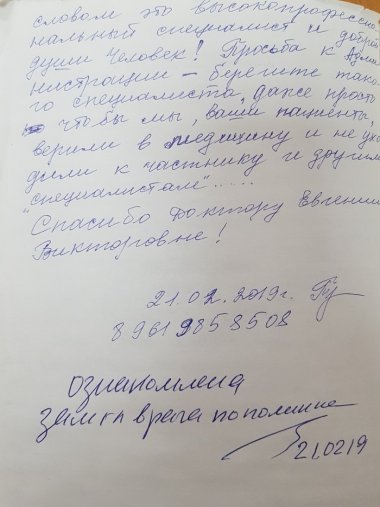 словом это высокопрофессио
нальный специалист и добрей
души Человек! Просьба к Адми
нистрации – берегите тако
го специалиста, даже просто
чтобы мы, ваши пациенты,
верили в медицину и не ухо
дили к частнику и другим
"специалистам"......
Спасибо Доктору Евгении
Викторовне!
21.02.2019г.
89619858508
ознакомлена
зам гл врача по поликлинике
210219